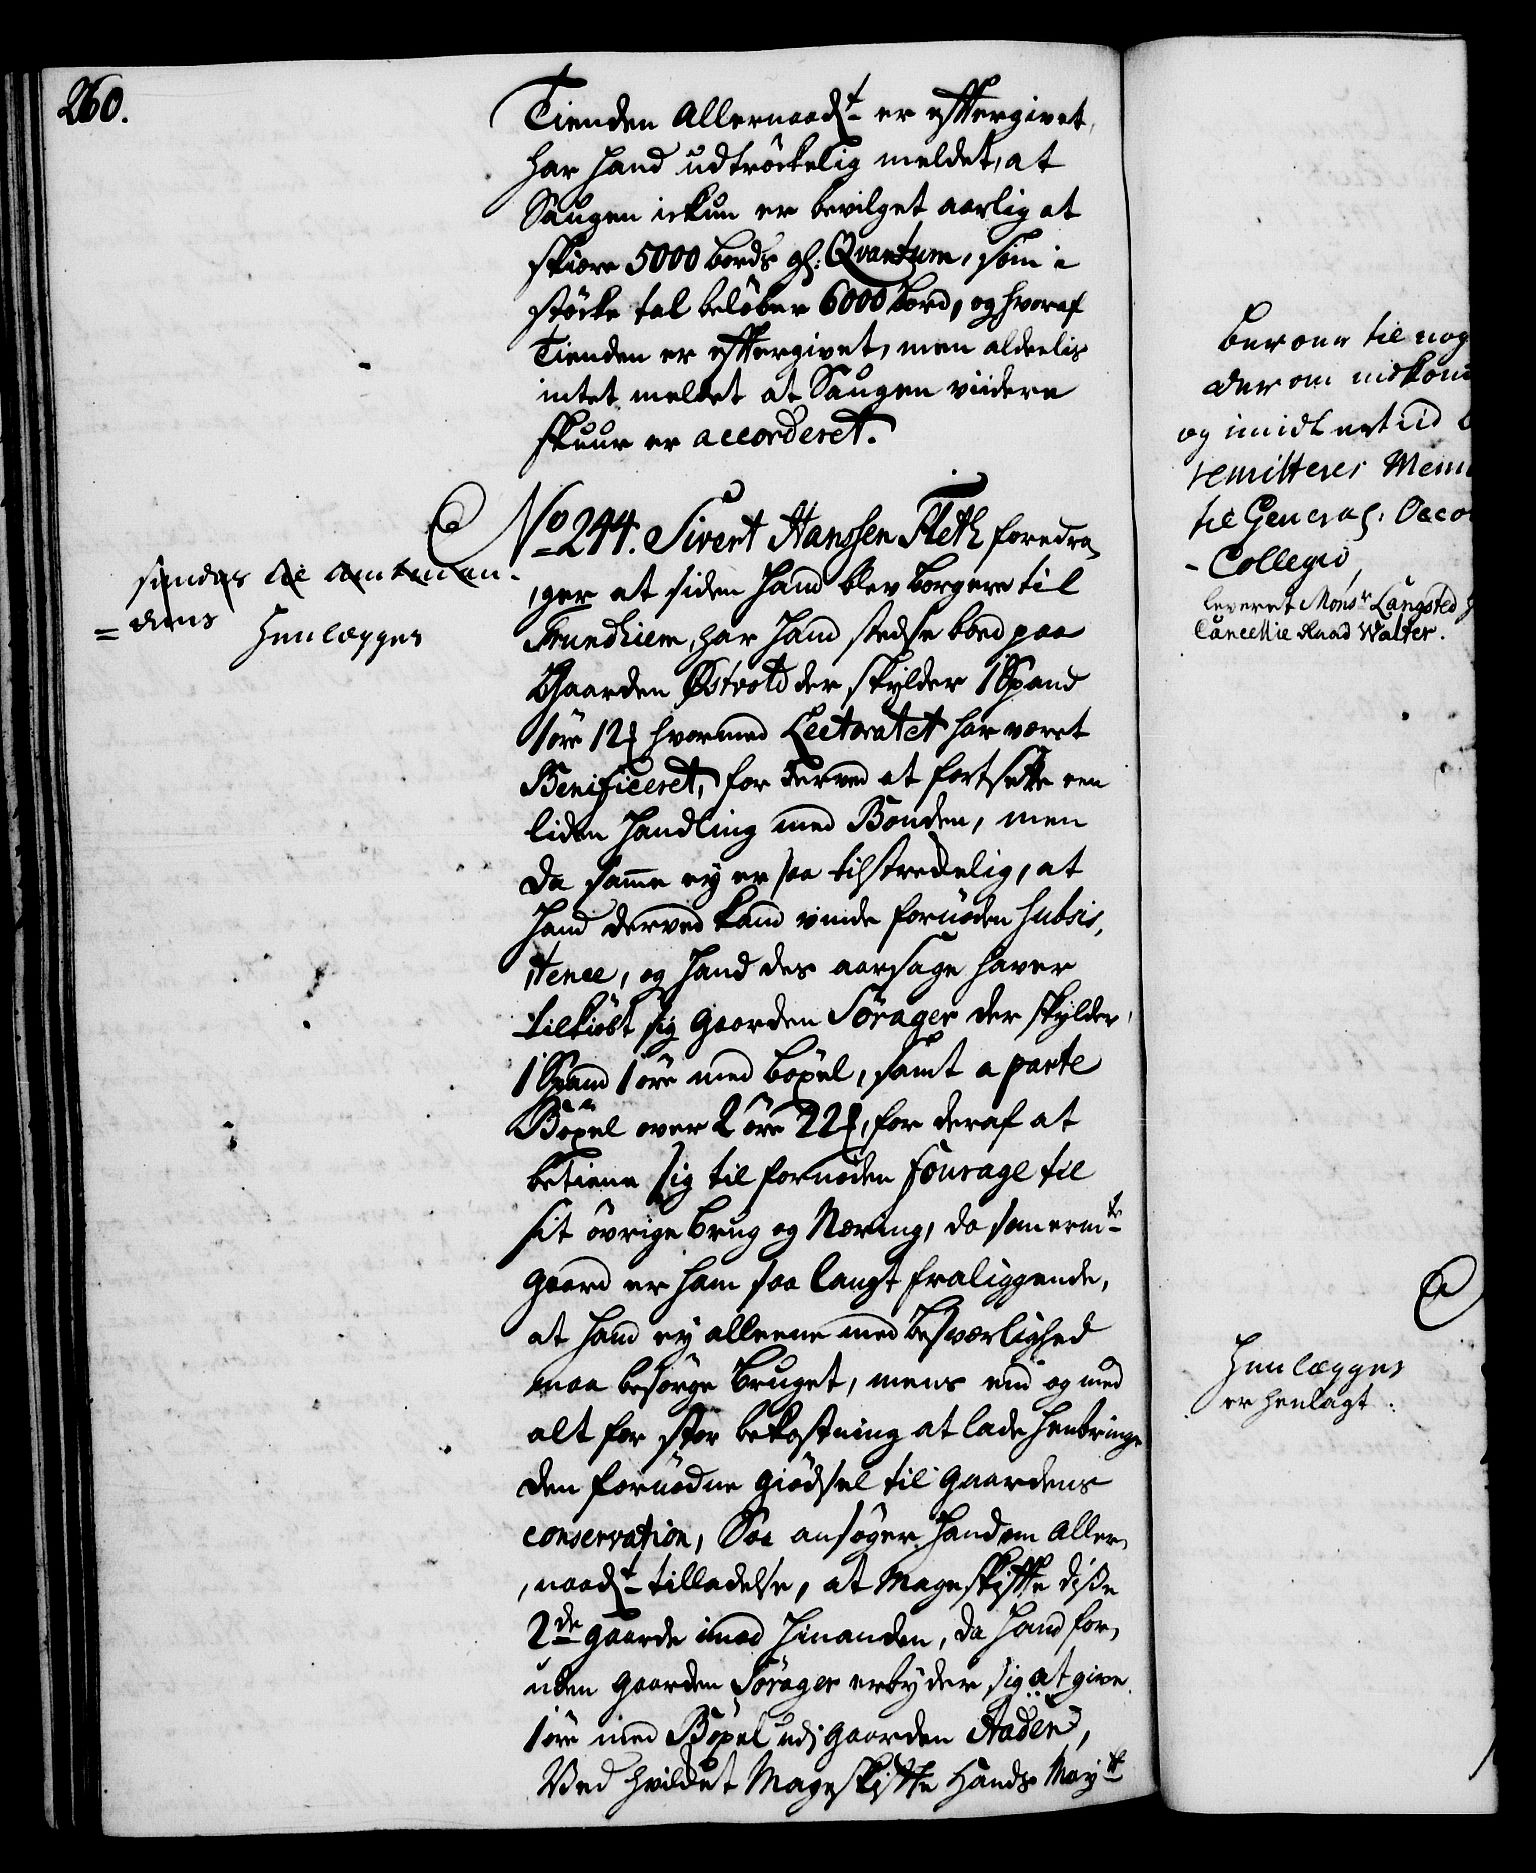 260.
Tienden Allernaadst er eftergivet,
har hand udtrÿckelig meldet, at
Saugen ickun er bevilget aarlig at
skiære 5000 bords gl: Qvantum, som i
stöcke tal belöber 6000 bord, og hvoraf
Tienden er eftergivet, men aldeelis
intet meldet at Saugen viidere
skuur er accorderet.
No 244. Sivert Hanssen Fleth foredra,
,ger at siden hand blev borgere til
Trundhiem, har hand stedse boed paa
Gaarden Østvold der skylder 1 Spand
1 öre 12 hvormed Lectoratet har været
Benificeret, for derved at fortsette een
liden handling med Bonden, men
da samme ey er saa tilstredelig, at
hand derved kand vinde fornöden subsis,
,tence, og hand des aarsage haver
tilkiöbt sig gaarden Sörager der skylder,
1 Spand 1 öre med böxel, samt a parte
Böxel over 2 öre 22, for deraf at
betiene sig til fornöden fourage til
sit övrige brug og Næring, da
gaard er ham saa langt fraliggende,
at hand ey alleene med besværlighed
maa besörge bruget, mens end og med
alt for stor bekostning at lade henbringe
den fornödne giödsel til gaardens
conservation, Saa ansöger hand om Aller,
,naadst tilladelse, at Mageskifte disse
2de gaarde imod hinanden, da hand for,
uden gaarden Sörager erbyder sig at give
1 öre med Böxel udj gaarden Aaden,
Ved hvilket Mageskifte Hands Mayts
sendes til Amtman-
=dens
Henlægges
Beroer til nog
derom indkom
og imidlertiid
remitteres Mem
til General: Oeco
-Collegio,
leveret Monsr Langsted
Cancellie Raad Walter.
Henlægges
er henlagt.